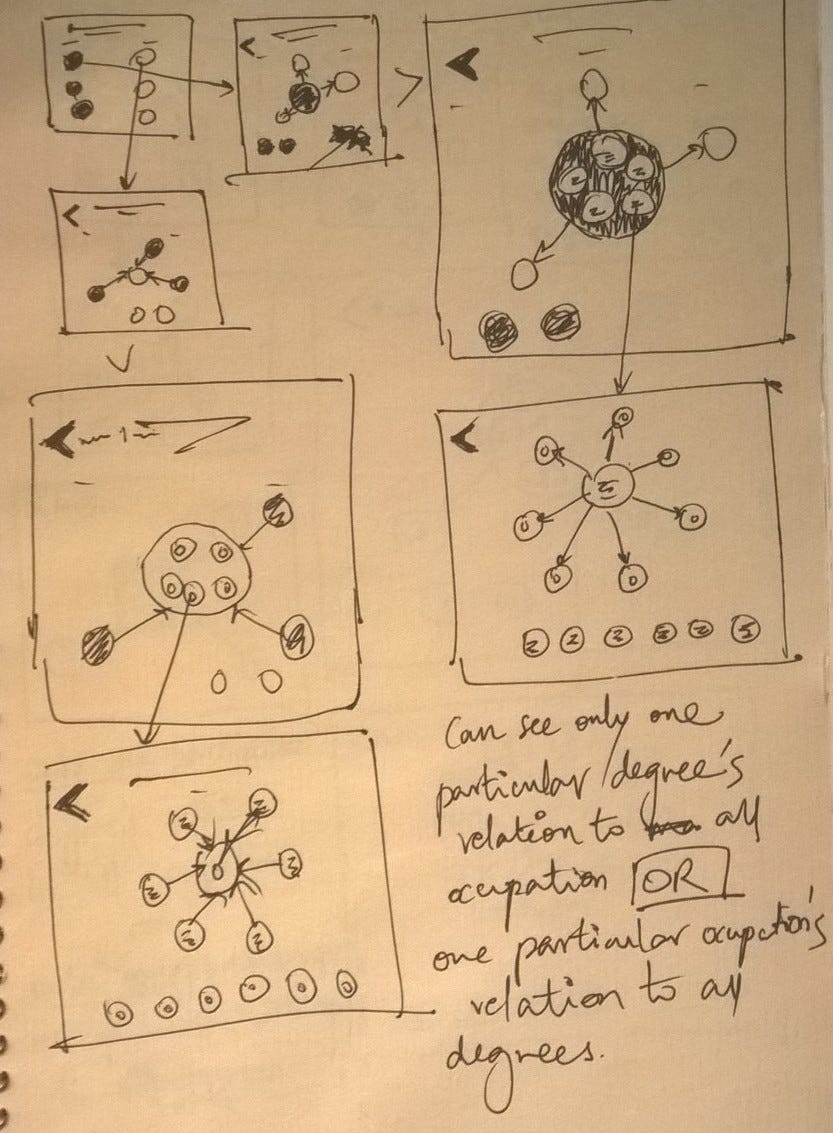 Can see only one
particular degree's
relation to all
ocupation OR
one particular ocupation's
relation to all
degrees.